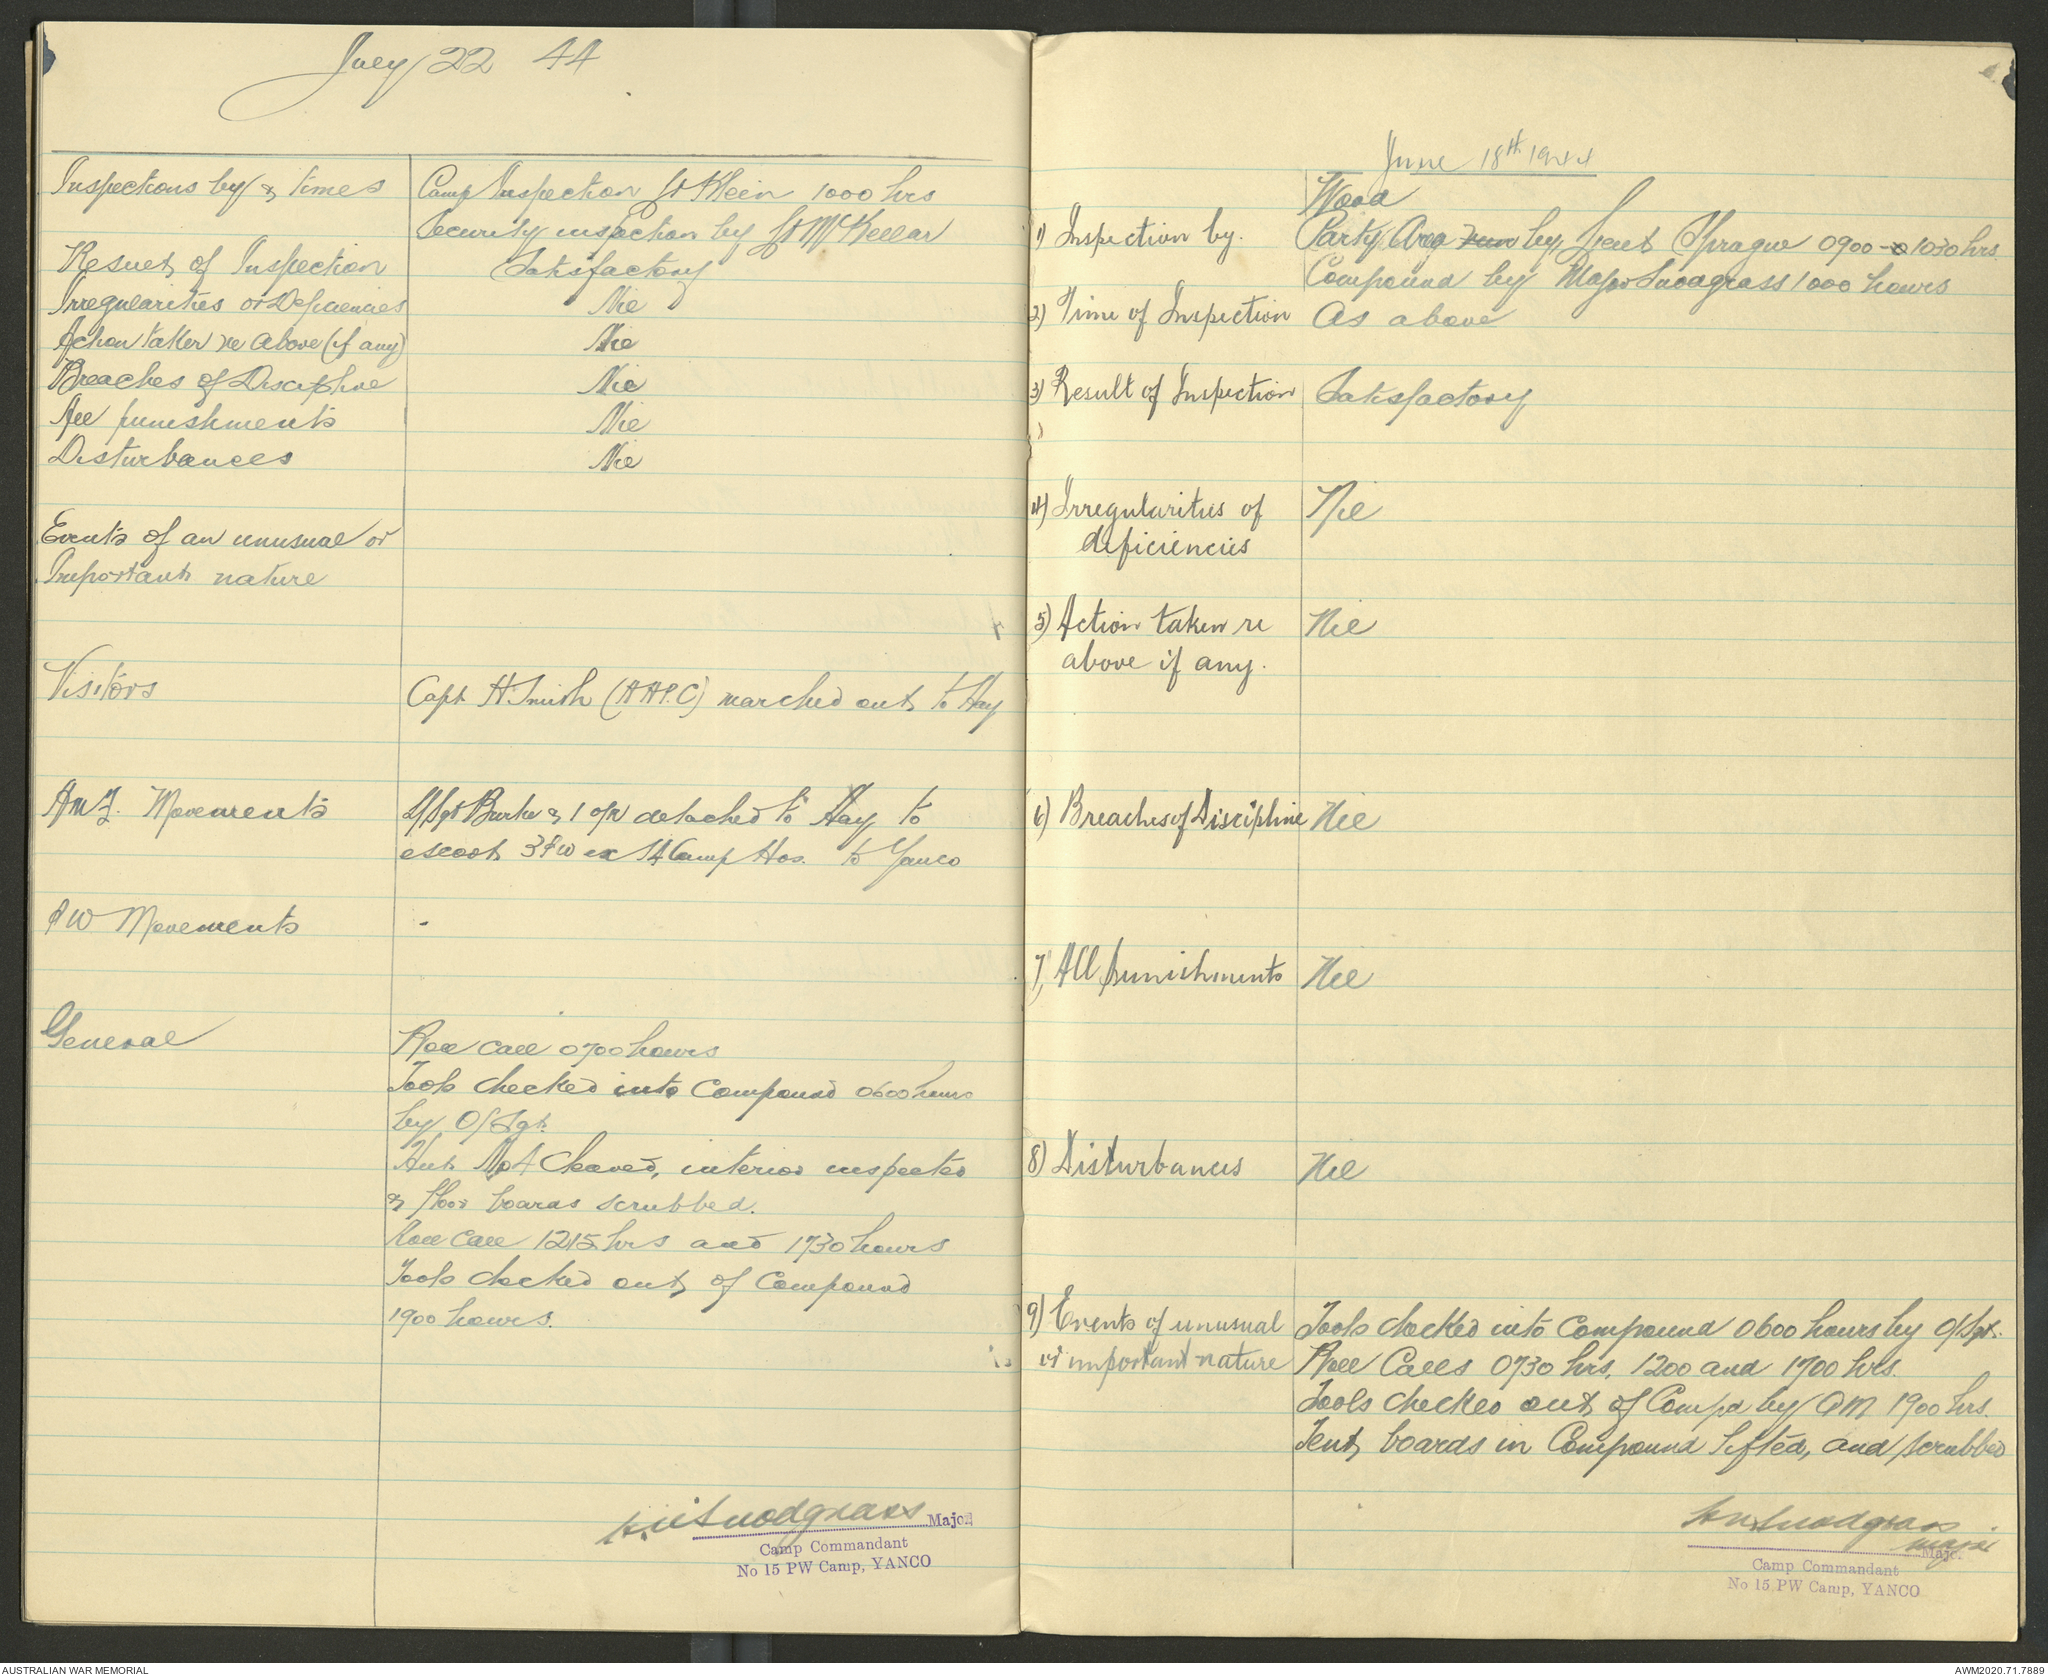 July 22 44
Inspections by & times Camp Inspection Lt Klein 1000 hrs
Security inspection by Lt McKellar
Result of Inspection Satisfactory
Irregularities or Deficiencies Nil
Action taken re Above (if any) Nil
Breaches of Discipline Nil
All punishments Nil
Disturbances Nil
Events of an unusual or
Important nature
Visitors Capt H. Smith (AAPC) marched out to Hay
A.M.F. Movements L/Sgt Burke & 1 o/r detached to Hay to
escort 3 PW ex Camp Hos. to Yanco
PW Movements -
General Roll Call 0700 hours
Tools checked into Compound 0600 hours
by O/Sgt.
Hut No 4 cleared, interior inspected
& floor boards scrubbed.
Roll Call 1215 hrs and 1730 hours
Tools checked out of Compound
1900 hours.
Snodgrass Major
Camp Commandant
No 15 PW Camp, YANCO
June 18th 1944
Wood
1) Inspection by. Party Area by Lieut Sprague 0900 - 1030 hrs.
Compound by Major Snodgrass 1000 hours
2) Time of Inspection As above
3) Result of Inspection Satisfactory
4) Irregularities of Nil
deficiencies
5) Action taken re Nil
above if any.
6) Breaches of Discipline Nil
7) All punishments Nil
8) Disturbances Nil
9) Events of unusual Tools checked into Compound 0600 hours by O/Sgt.
or important nature Roll Calls 0730 hrs, 1200 and 1700 hrs.
Tools checked out of Compd by QM 1900 hrs.
Tent boards in Compound lifted, and scrubbed
Snodgrass
Major
Major
Camp Commandant
No 15 PW Camp, YANCO
AUSTRALIAN WAR MEMORIAL AWM2020.71.7889